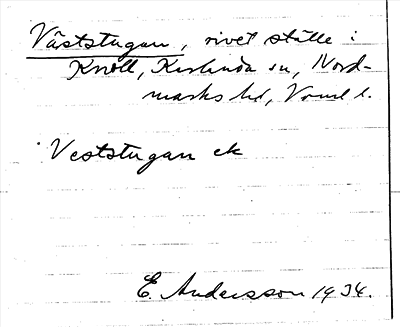 Väststugan, rivet ställe i
Knöll, Karlanda sn, Nord-
marks hd, Värml l.
Veststugan ck
E. Andersson 1934.